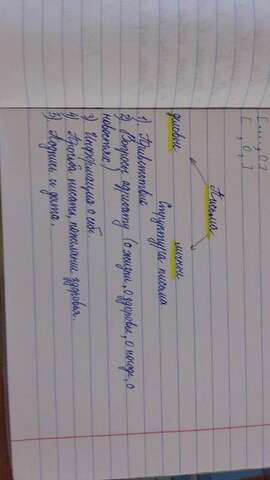 [ ..., 0. ]
[ , 0, ]
Письма
деловые личные
Структура письма
1) Приветствие
2) Вопросы адресату (о жизни, о здоровье, о погоде, о
новостях.)
3) Информация о себе.
4) Просьба писать, пожелание здоровья.
5) Подпись и дата.